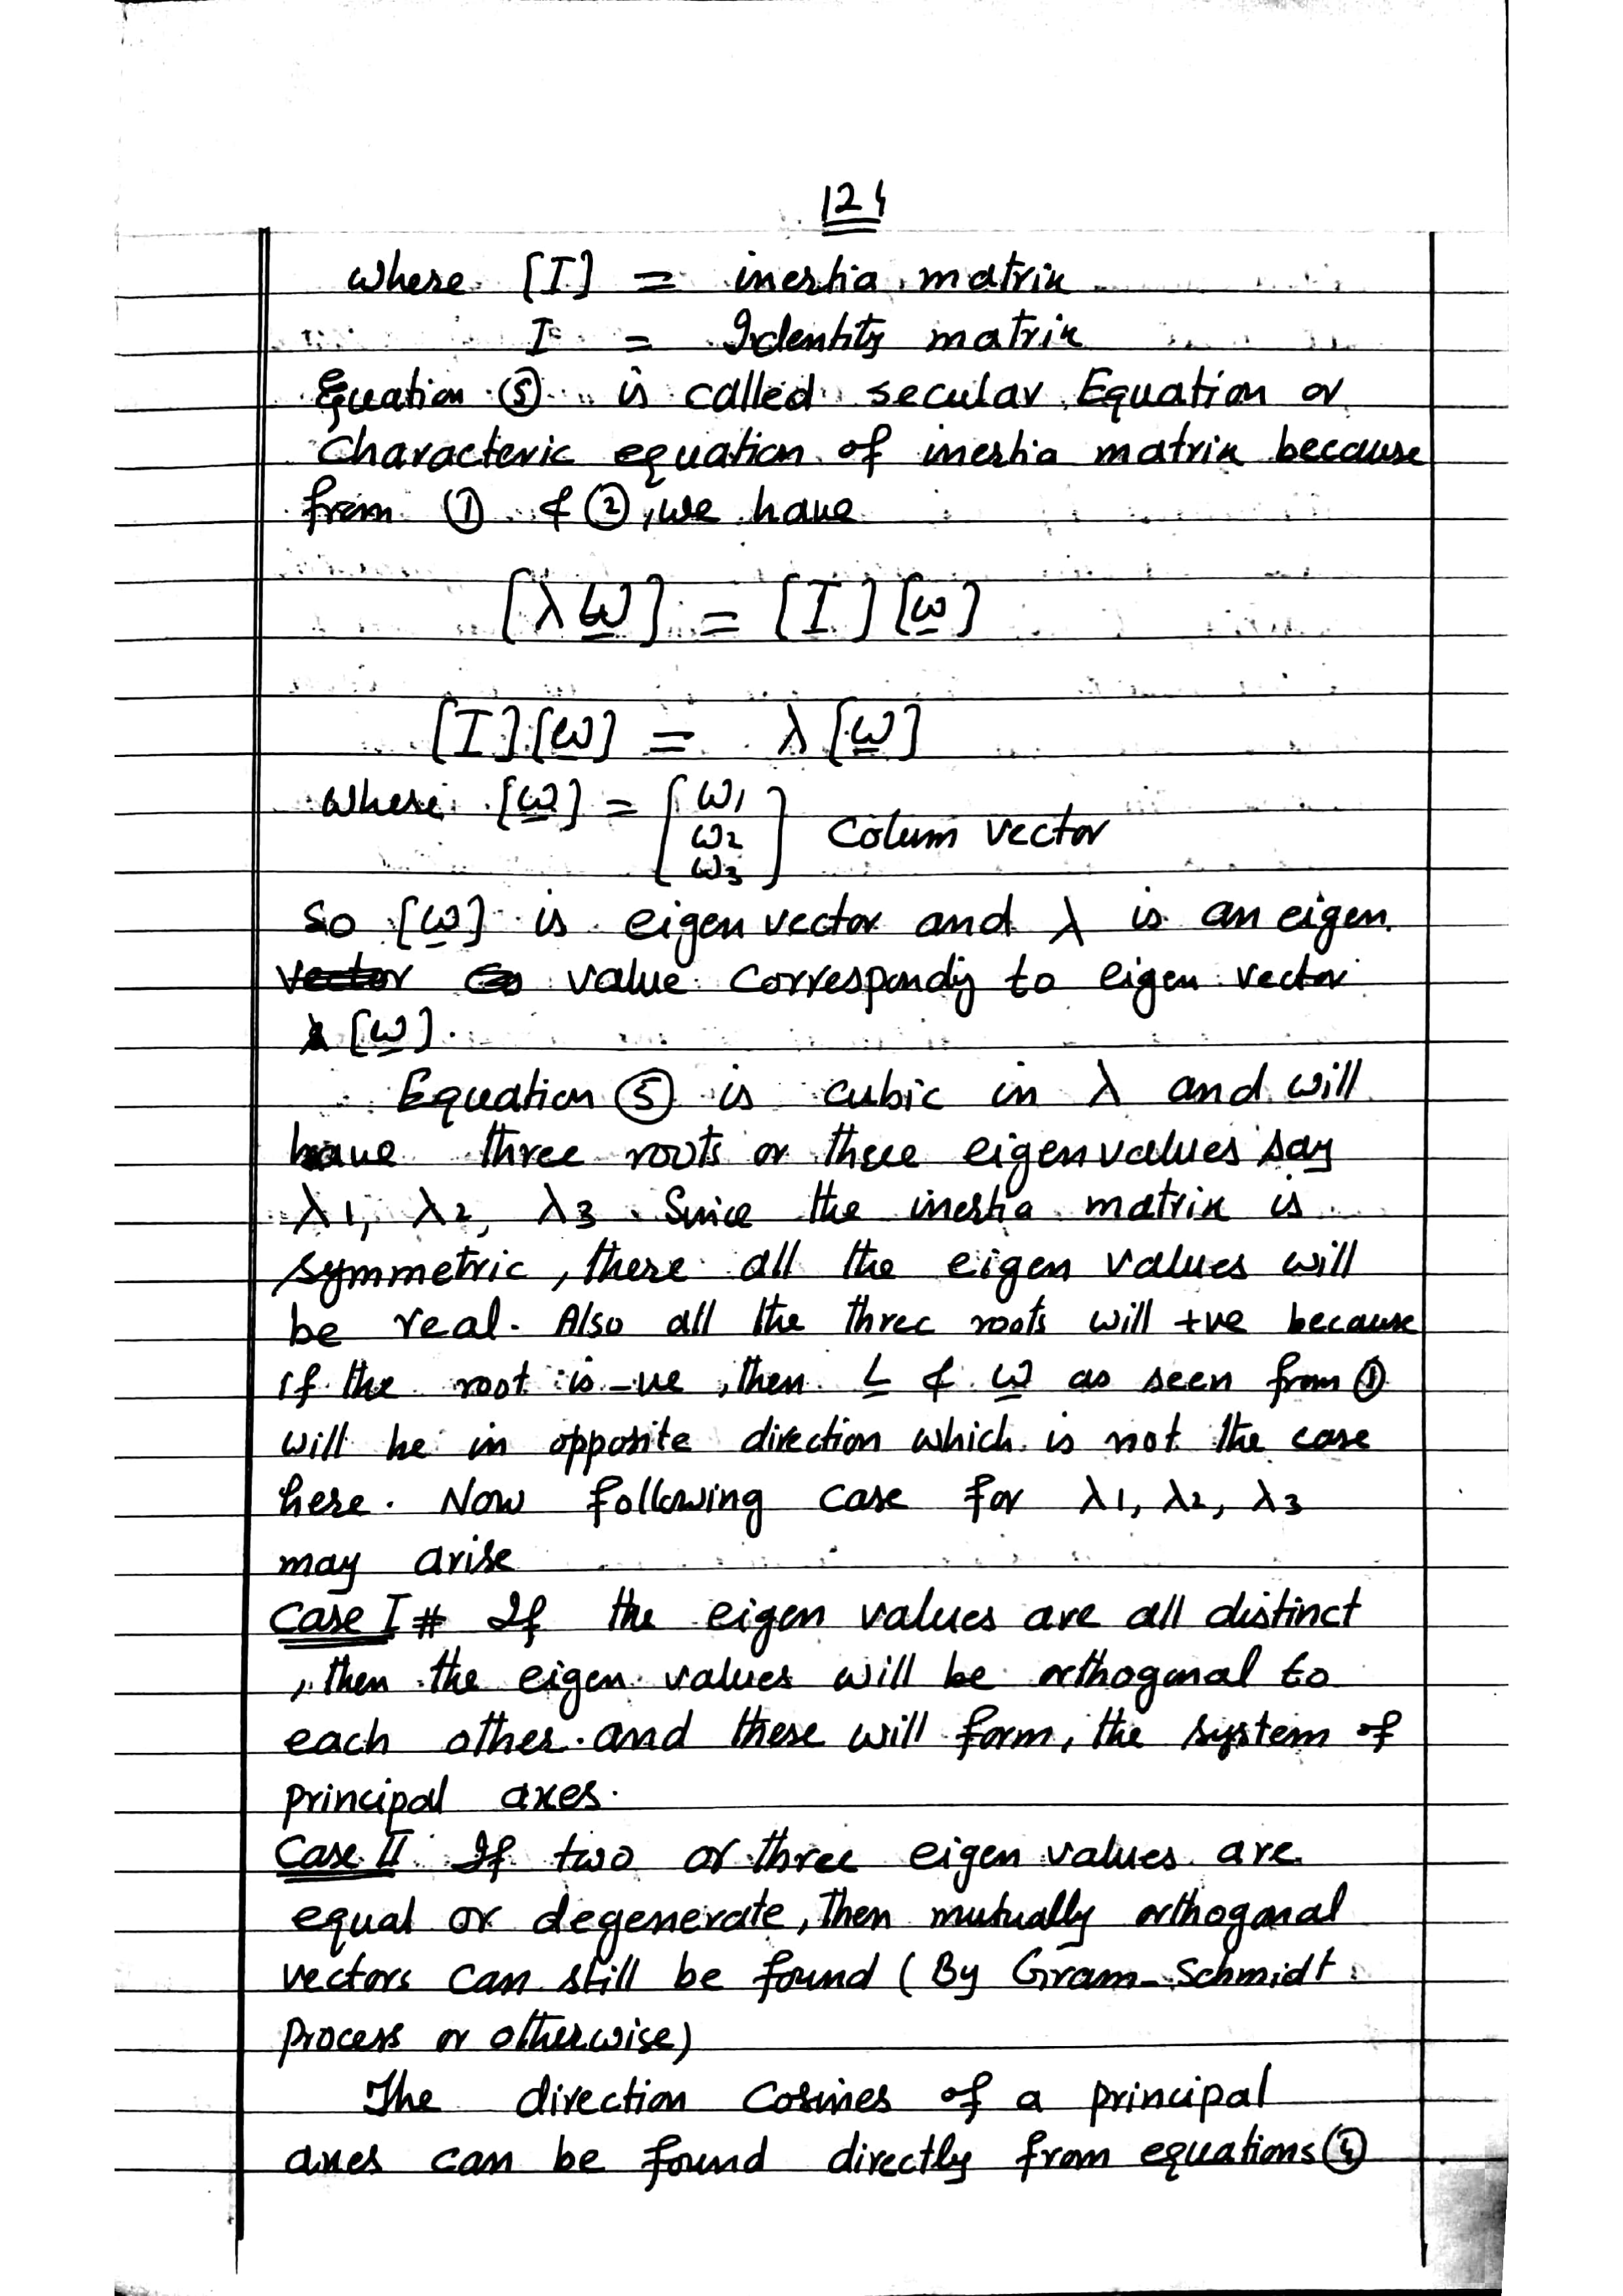 124
where [I] = inertia matrix
I = Identity matrix
Equation ⑤ is called secular Equation or
Characteric equation of inertia matrix because
from ① & ②, we have
[λω̲] = [I][ω̲]
[I][ω̲] = λ[ω̲]
where [ω̲] = [ω1
ω2
ω3] Colum vector
so [ω̲] is eigen vector and λ is an eigen
value correspondig to eigen vector
[ω̲].
Equation ⑤ is cubic in λ and will
have three roots or three eigenvalues say
λ1, λ2, λ3. Since the inertia matrix is
symmetric, there all the eigen values will
be real. Also all the three roots will +ve because
if the root is -ve, then L̲ & ω̲ as seen from ①
will be in opposite direction which is not the case
here. Now following case for λ1, λ2, λ3
may arise
Case I # If the eigen values are all distinct
, then the eigen values will be orthogonal to
each other. and these will form, the system of
principal axes.
Case II If two or three eigen values are
equal or degenerate, then mutually orthogonal
vectors can still be found (By Gram-Schmidt
process or otherwise)
The direction cosines of a principal
axes can be found directly from equations ④